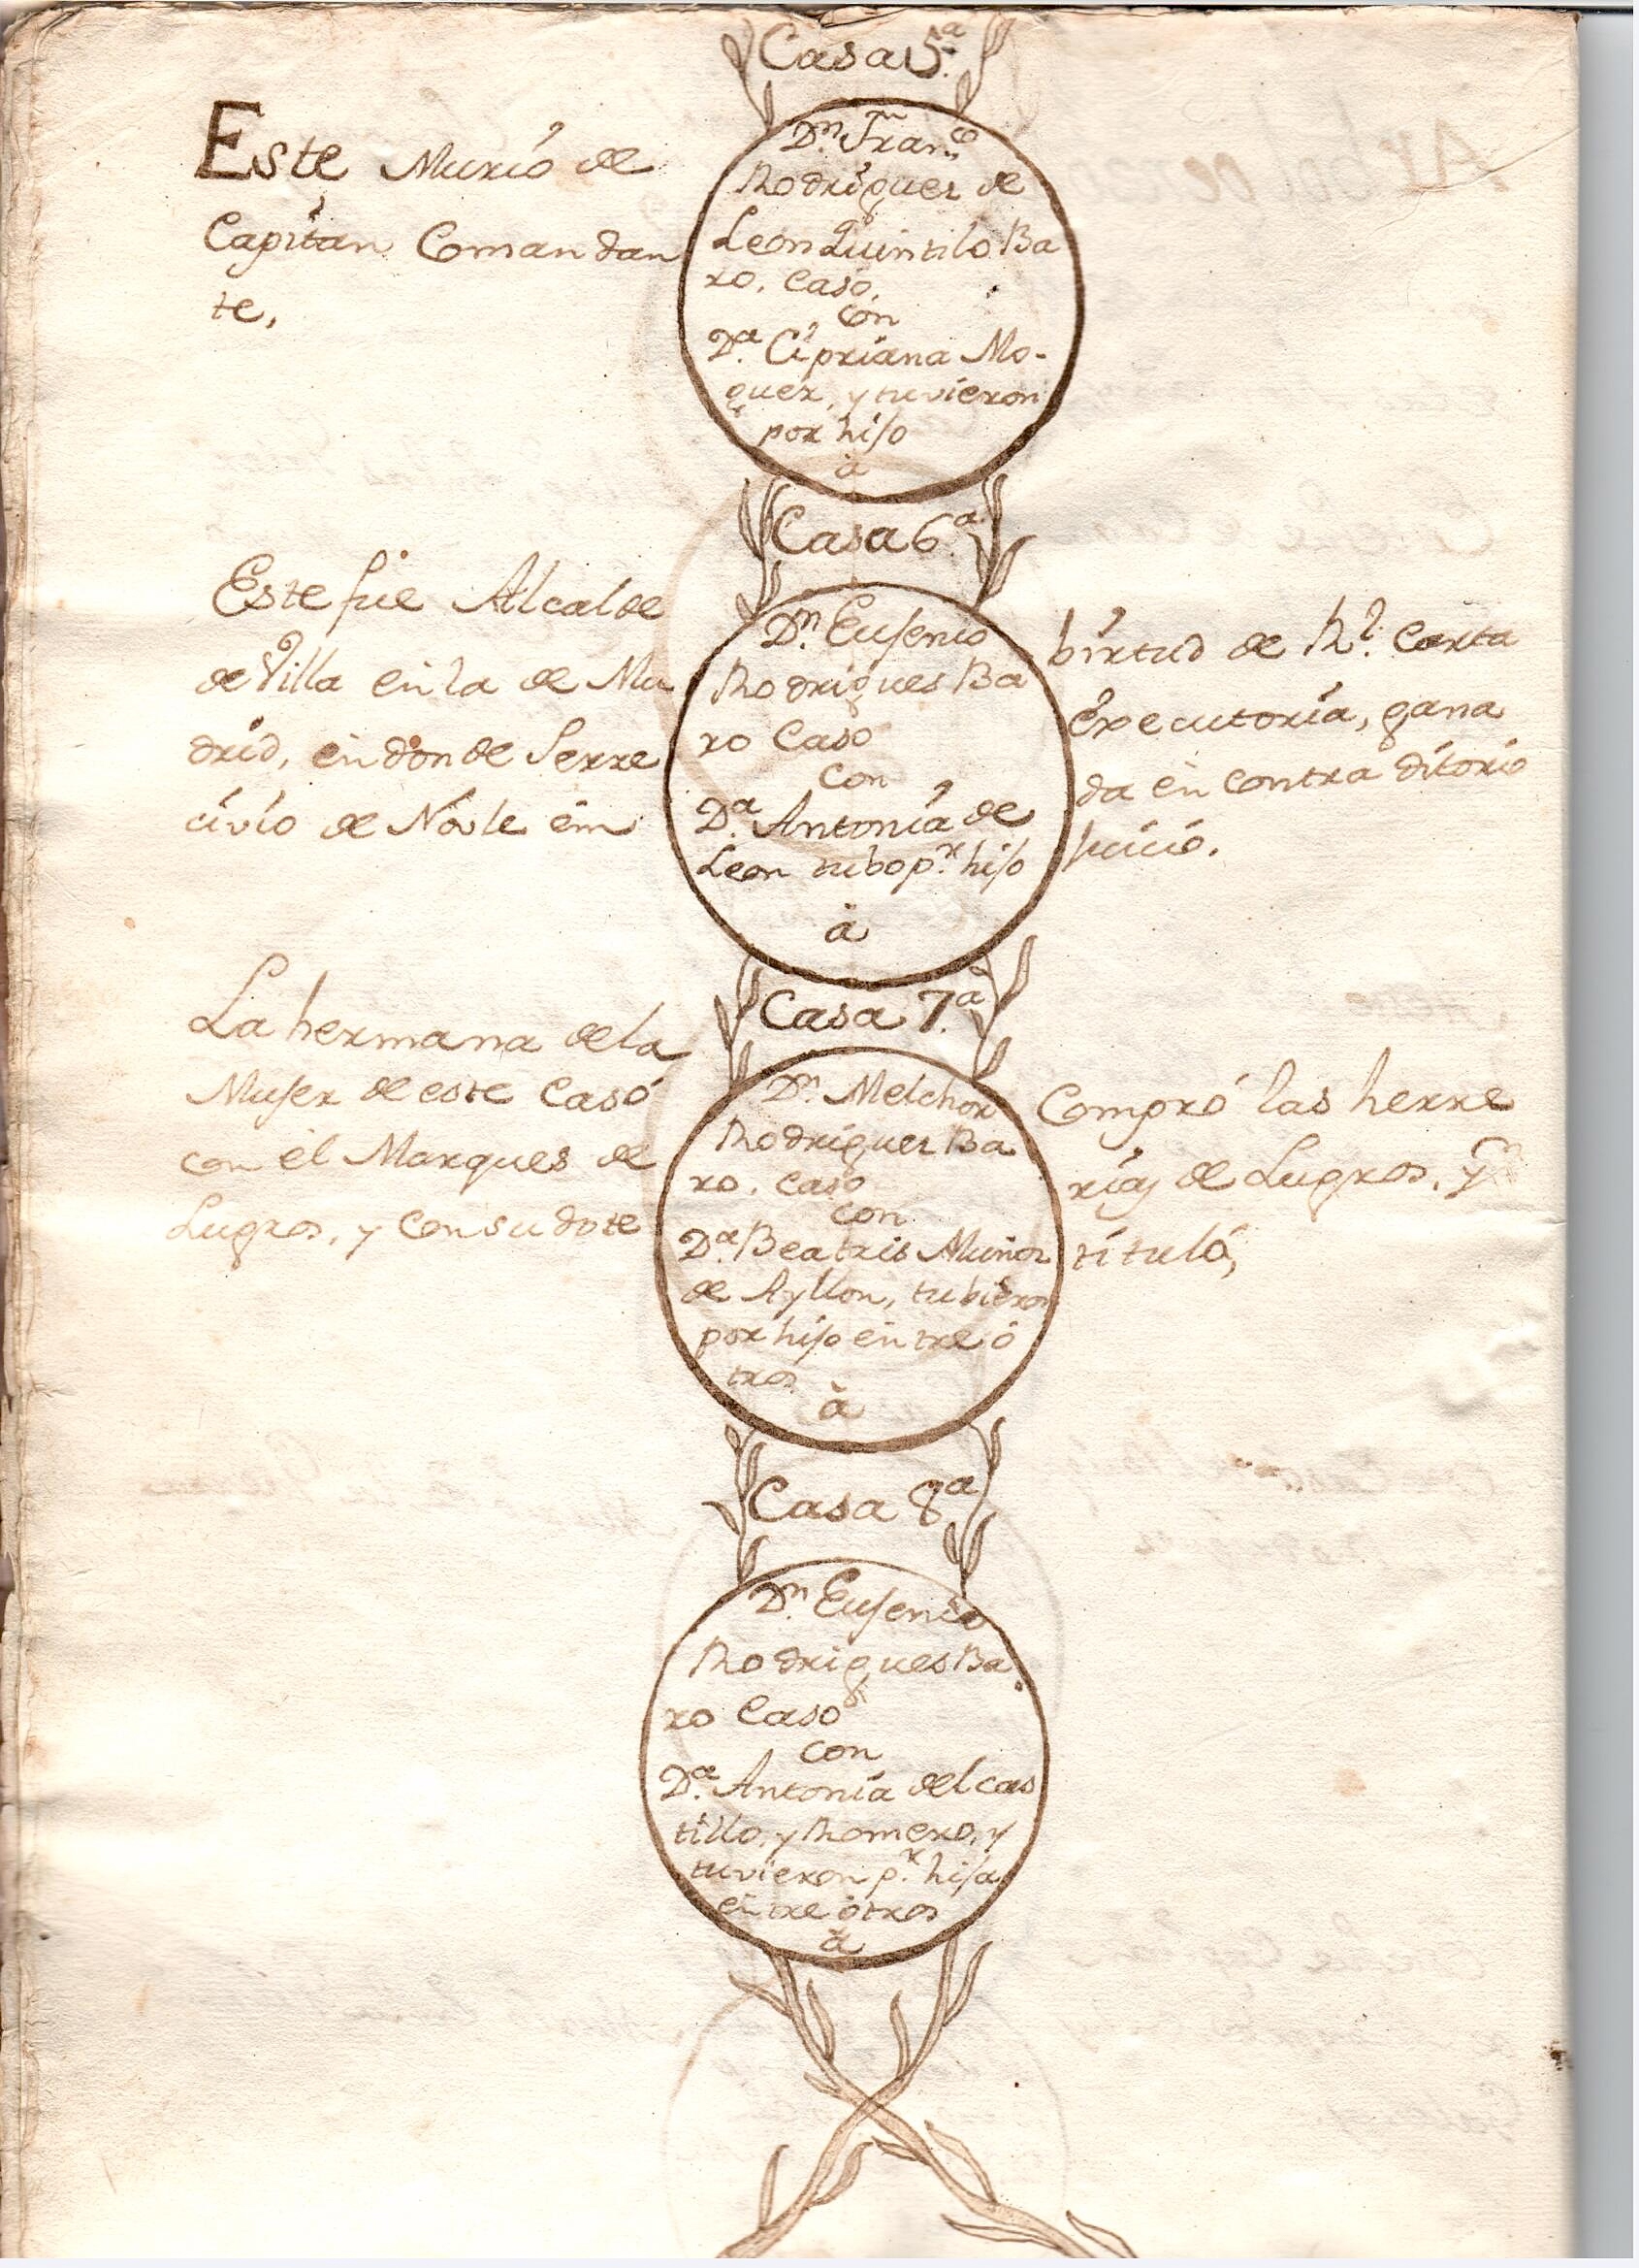 Casa 5.ª
Este Murió de
Capitan Coman dan
te,
Dn. Franco
Rodriguez de
Leon Quintilo Ba
ro. Casó,
con
Da. Cipriana Mo-
guer, y tuvieron
por hijo
à
Casa 6.ª
Este fue Alcalde
de Villa en la de Ma
drid, en donde Serre
civio de Noble em
Dn. Eugenio
Rodrigues Ba
ro Caso
con
Da. Antonia de
Leon tubo pr. hijo
à
birtud de Rl. Carta
executoria, gana
da en contra ditorio
juicio.
Casa 7.ª
La hermana de la
Mujer de este Casó
con el Marques de
Lugros, y con su dote
Dn. Melchor
Rodriguez Ba
ro. Caso
con
Da. Beatris Muñoz
de Ayllon, tubieron
por hijo entre ó
tros
à
Compró las herre
rias de Lugros, y
tituló,
Casa 8ª
Dn. Eugenio
Rodrigues Ba
ro Caso
con
Da. Antonia del Cas
tillo, y Romero, y
tuvieron pr. hija
entre otros
à